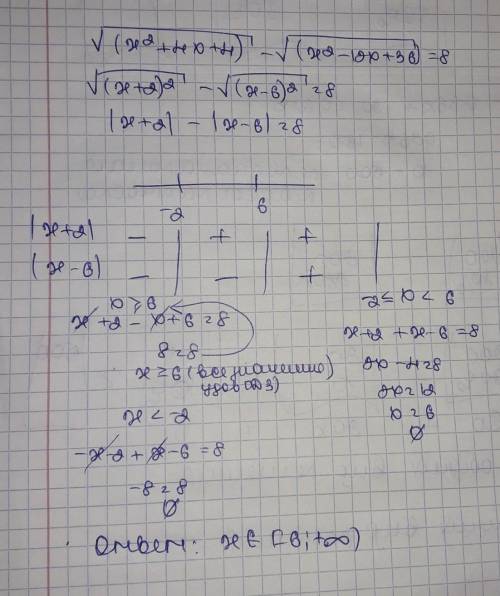 √(x²+4x+4) - √(x²-12x+36) = 8
√(x+2)² - √(x-6)² = 8
|x+2| - |x-6| = 8
-2 6
|x+2| - + +
(x-6) - - +
x ≥ 6
x+2-x+6=8
8=8
x≥6 (все значению удов ОДЗ)
x < -2
-x-2+x-6=8
-8=8
∅
-2≤x<6
x+2+x-6=8
2x-4=8
2x=12
x=6
∅
Ответ: x∈[6;+∞)